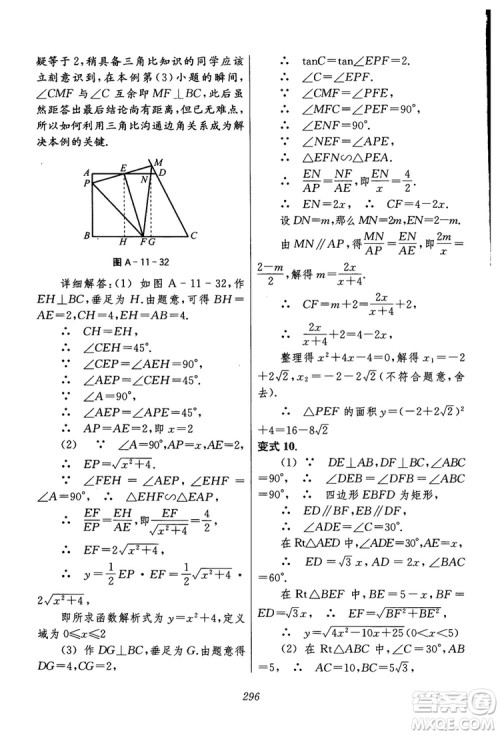 疑等于2,稍具备三角比知识的同学应该
立刻意识到,在本例第(3)小题的瞬间,
∠CMF与∠C互余即MF⊥BC,此时虽
然距答出最后结论尚有距离,但已无难点,
所以利用三角比沟通边角关系成为解
决本例的关键.
M
A E D
P N
B H F G C
图A-11-32
详细解答:(1) 如图A-11-32,作
EH⊥BC,垂足为H.由题意,可得BH=
AE=2,EH=AB=4.
∴ CH=EH,
∴ ∠CEH=45°.
∵ ∠PEC=90°,
∴ ∠AEP=45°.
∵ ∠A=90°,
∴ ∠APE=45°,
∴ AP=AE=2.
(2) ∵ ∠A=90°,AP=x,AE=2,
∴ EP=√(x²+4).
∵ ∠FEH=∠AEP,∠EHF=∠A=90°,
∴ △EHF∽△EAP,
∴ EF/EP=EH/AE,即EF/√(x²+4)=4/2,
∴ EF=2√(x²+4),
∴ y=1/2 EP·EF=1/2√(x²+4)·
2√(x²+4).
即所求函数解析式为y=x²+4,定义
域为0≤x≤2
(3) 作DG⊥BC,垂足为G.由题意,
得DG=4,GC=2.
∴ tanC=tan∠EPF=2.
∴ ∠C=∠EPF.
∴ ∠MFC=90°.
∵ ∠ENF=∠A=90°,
∴ △EFN∽△PEA,
∴ EN/AP=NF/AE,即EN/x=4/2,
∴ EN=2x,∴ CF=4-2x.
设DN=m,那么MN=2m,EN=2-m.
∵ MN∥AP,∴ MN/AP=EN/AE,即2m/x=
(2-m)/2,解得m=2x/(x+4).
∴ CF=m+2=2x/(x+4)+2,
∴ 2x/(x+4)+2=4-2x.
整理得x²+4x-4=0,解得x₁=-2
+2√2,x₂=-2-2√2(不符合题意,舍
去).
∴ △PEF的面积y=(-2+2√2)²
+4=16-8√2
变式10.
(1) ∵ DE⊥AB,DF⊥BC,∠ABC
=90°,∴ ∠DEB=∠DFB=∠ABC
=90°,∴ 四边形EBFD为矩形,
∴ ED∥BF,ED=BF.
在Rt△AED中,∠AED=90°,∠A
=60°,∴ ED=√3x,AD=2x,BF=√3x.
在Rt△EBF中,∠EBF=90°,
∴ EF=√(BF²+BE²),
∴ y=√(4x²-10x+25)(0<x<5)
(2) 在Rt△ABC中,∠A=60°,
AB=5,∴ AC=10,BC=5√3,
296
答案圈